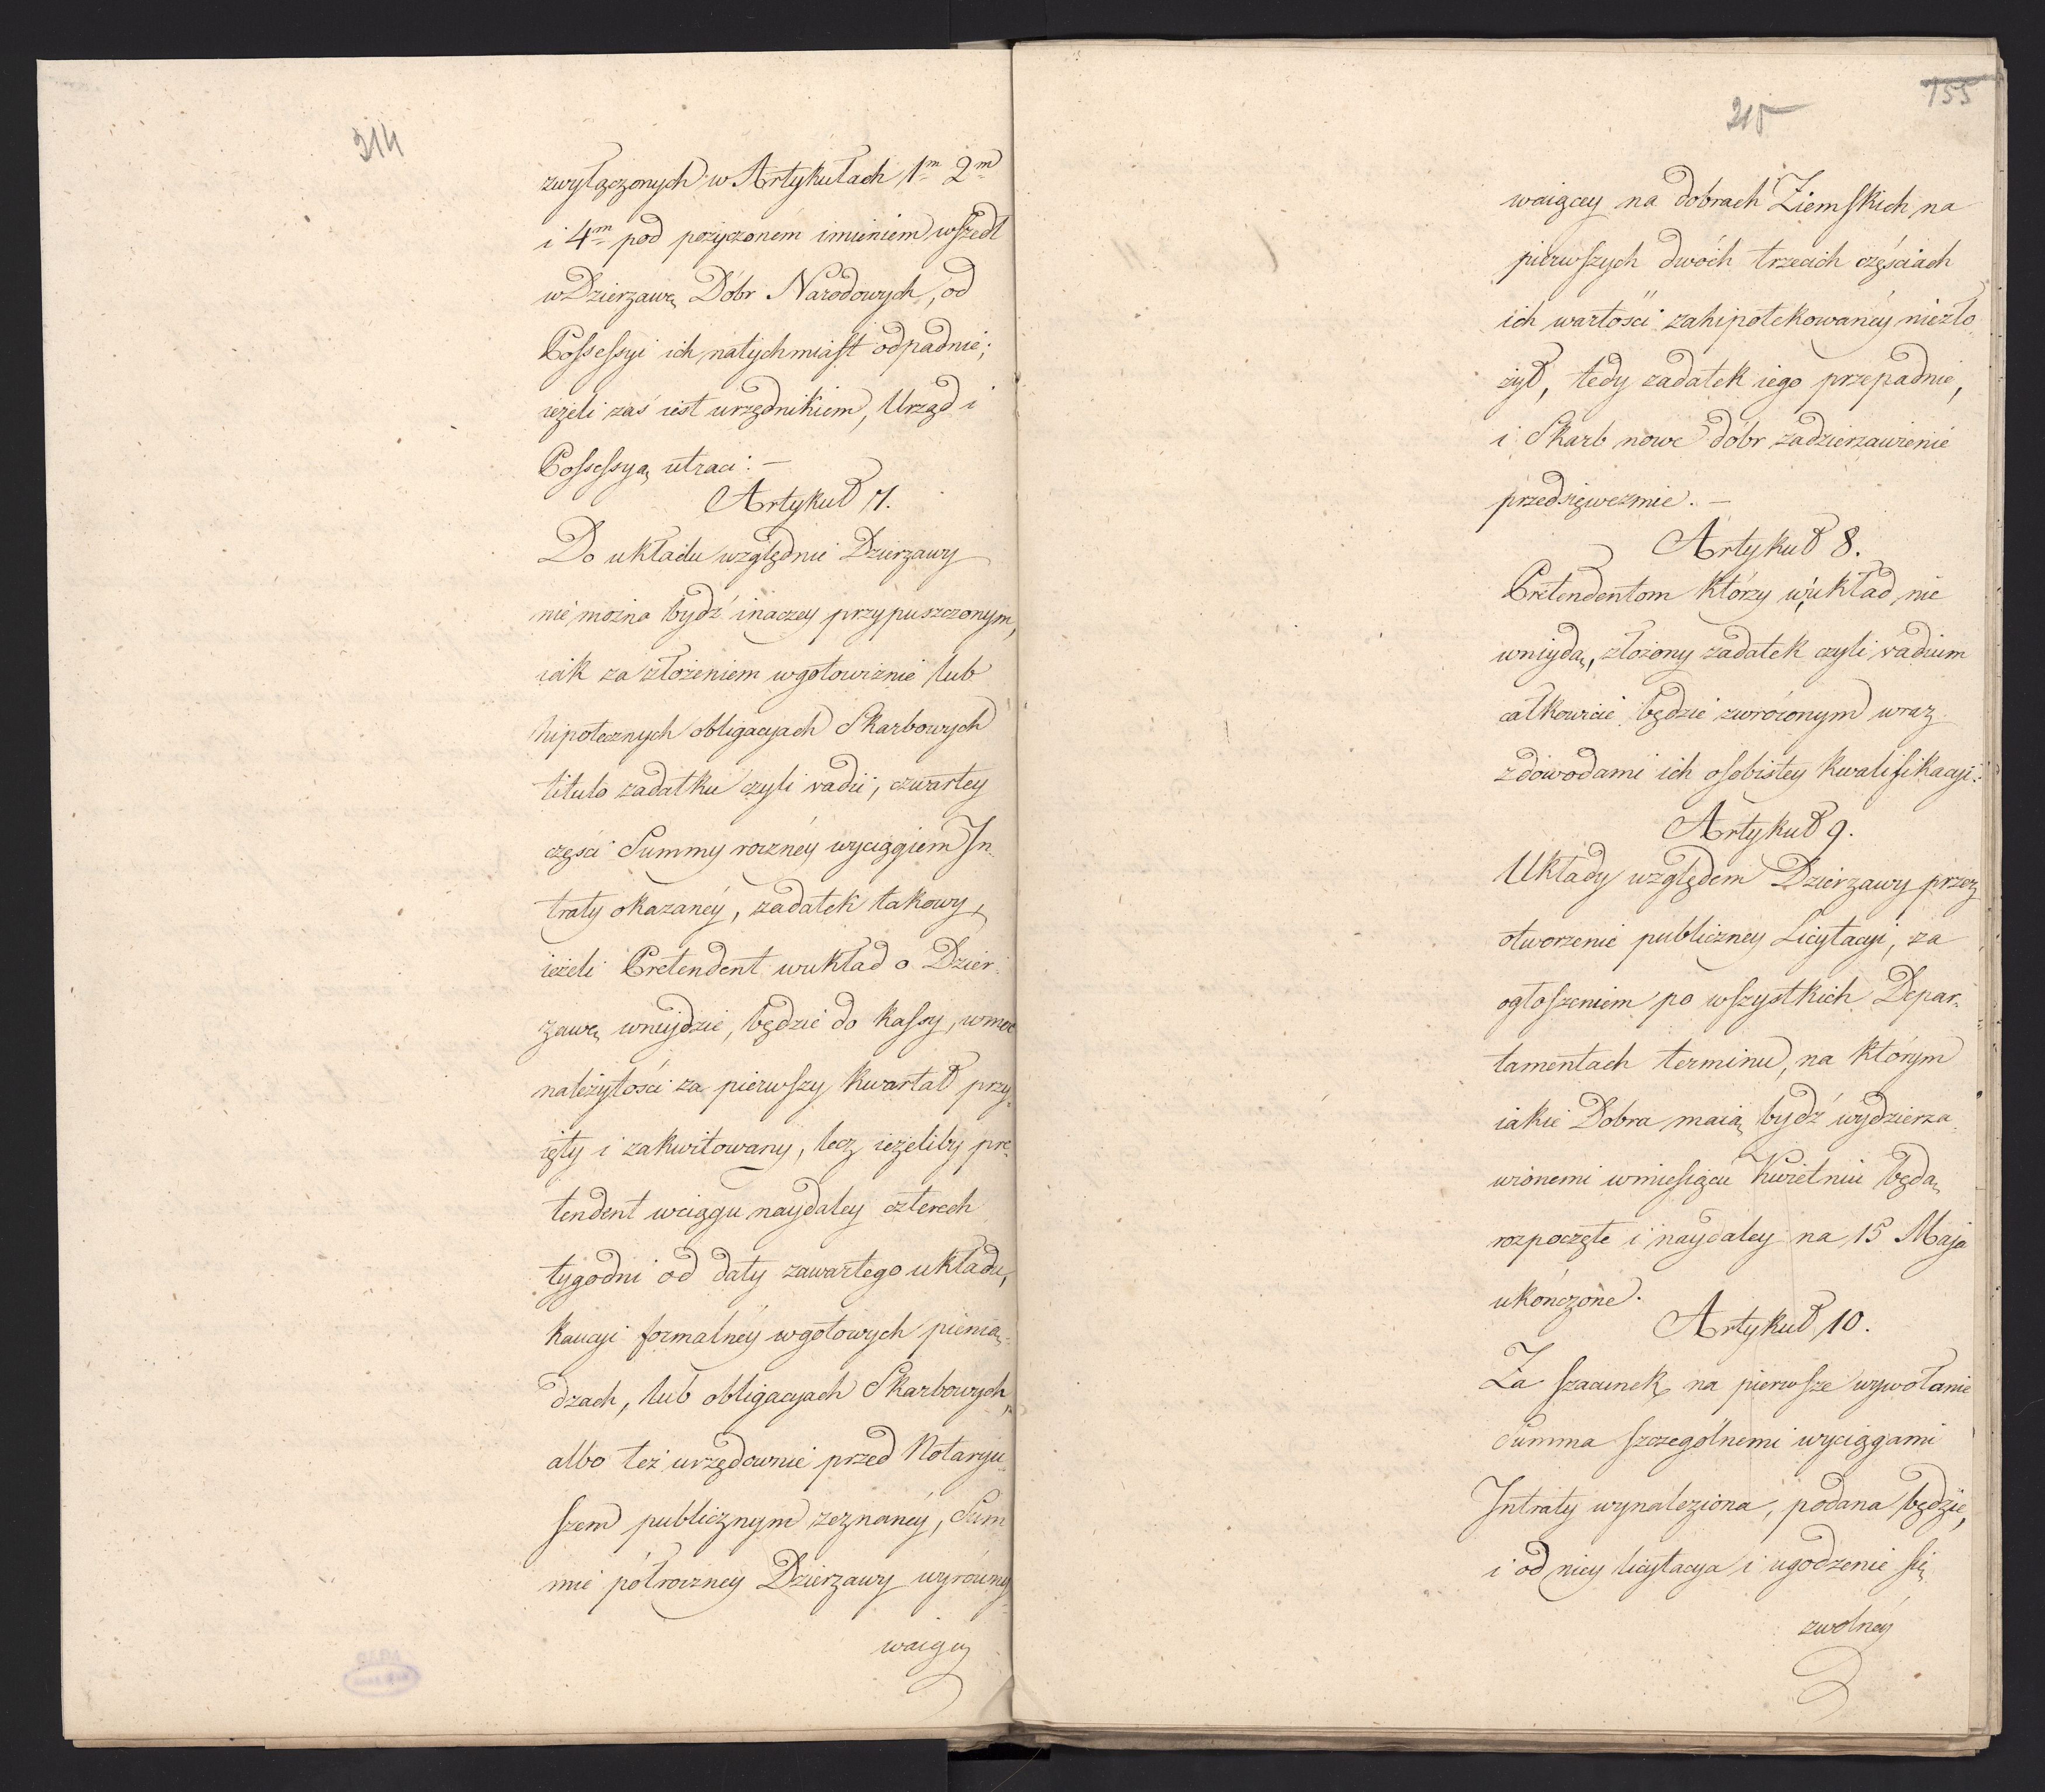 314
zwyłączonych w Artykułach 1m 2m
i 4m pod pożyczonem imieniem wszedł
w Dzierzawę Dóbr Narodowych, od
Possessyi ich natychmiast odpadnie;
ieżeli zaś iest urzędnikiem, Urząd i
Possessyą utraci: —
Artykuł 7.
Do układu względnie Dzierzawy
nie można bydź inaczey przypuszczonym,
iak za złożeniem wgotowiznie lub
hipotecznych obligacyach Skarbowych
titulo zadatku czyli vadii, czwartey
części Summy rocznéy wyciągiem In-
traty okazanéy, zadatek takowy,
ieżeli Pretendent wukład o Dzier-
zawę wnijdzie, będzie do kassy, wmoc
należytości za pierwszy kwartał przy-
ięty i zakwitowany, lecz ieżeliby pre-
tendent wciągu naydaley czterech
tygodni od daty zawartego układu,
kaucyi formalnéy wgotowych pienią-
dzach, lub obligacyach Skarbowych,
albo też urzędownie przed Notaryu-
szem publicznym zeznanéy, Sum-
mie półroczney Dzierzawy wyrówny-
waiącey
155
215
waiącey na dobrach Ziemskich na
pierwszych dwóch trzecich częściach
ich wartości zahipotekowanéy niezło-
żył, tedy zadatek iego przepadnie,
i Skarb nowe dóbr zadzierzawienie
przedsięwezmie. —
Artykuł 8.
Pretendentom którzy wukład nie
wniydą, złożony zadatek czyli vadium
całkowicie będzie zwróconym wraz
zdowodami ich osobistey kwalifikacyi.
Artykuł 9.
Układy względem Dzierzawy przez
otworzenie publiczney Licytacyi, za
ogłoszeniem po wszystkich Depar-
tamentach terminu, na którym
iakie Dobra maią bydź wydzierza-
wionemi wmiesiącu Kwietniu będą
rozpoczęte i naydaley na 15 Maja
ukończone.
Artykuł 10.
Za szacunek na pierwsze wywołanie
Summa szczególnemi wyciągami
Intraty wynaleziona, podana będzie,
i od niey licytacya i ugodzenie się
zwolnéy